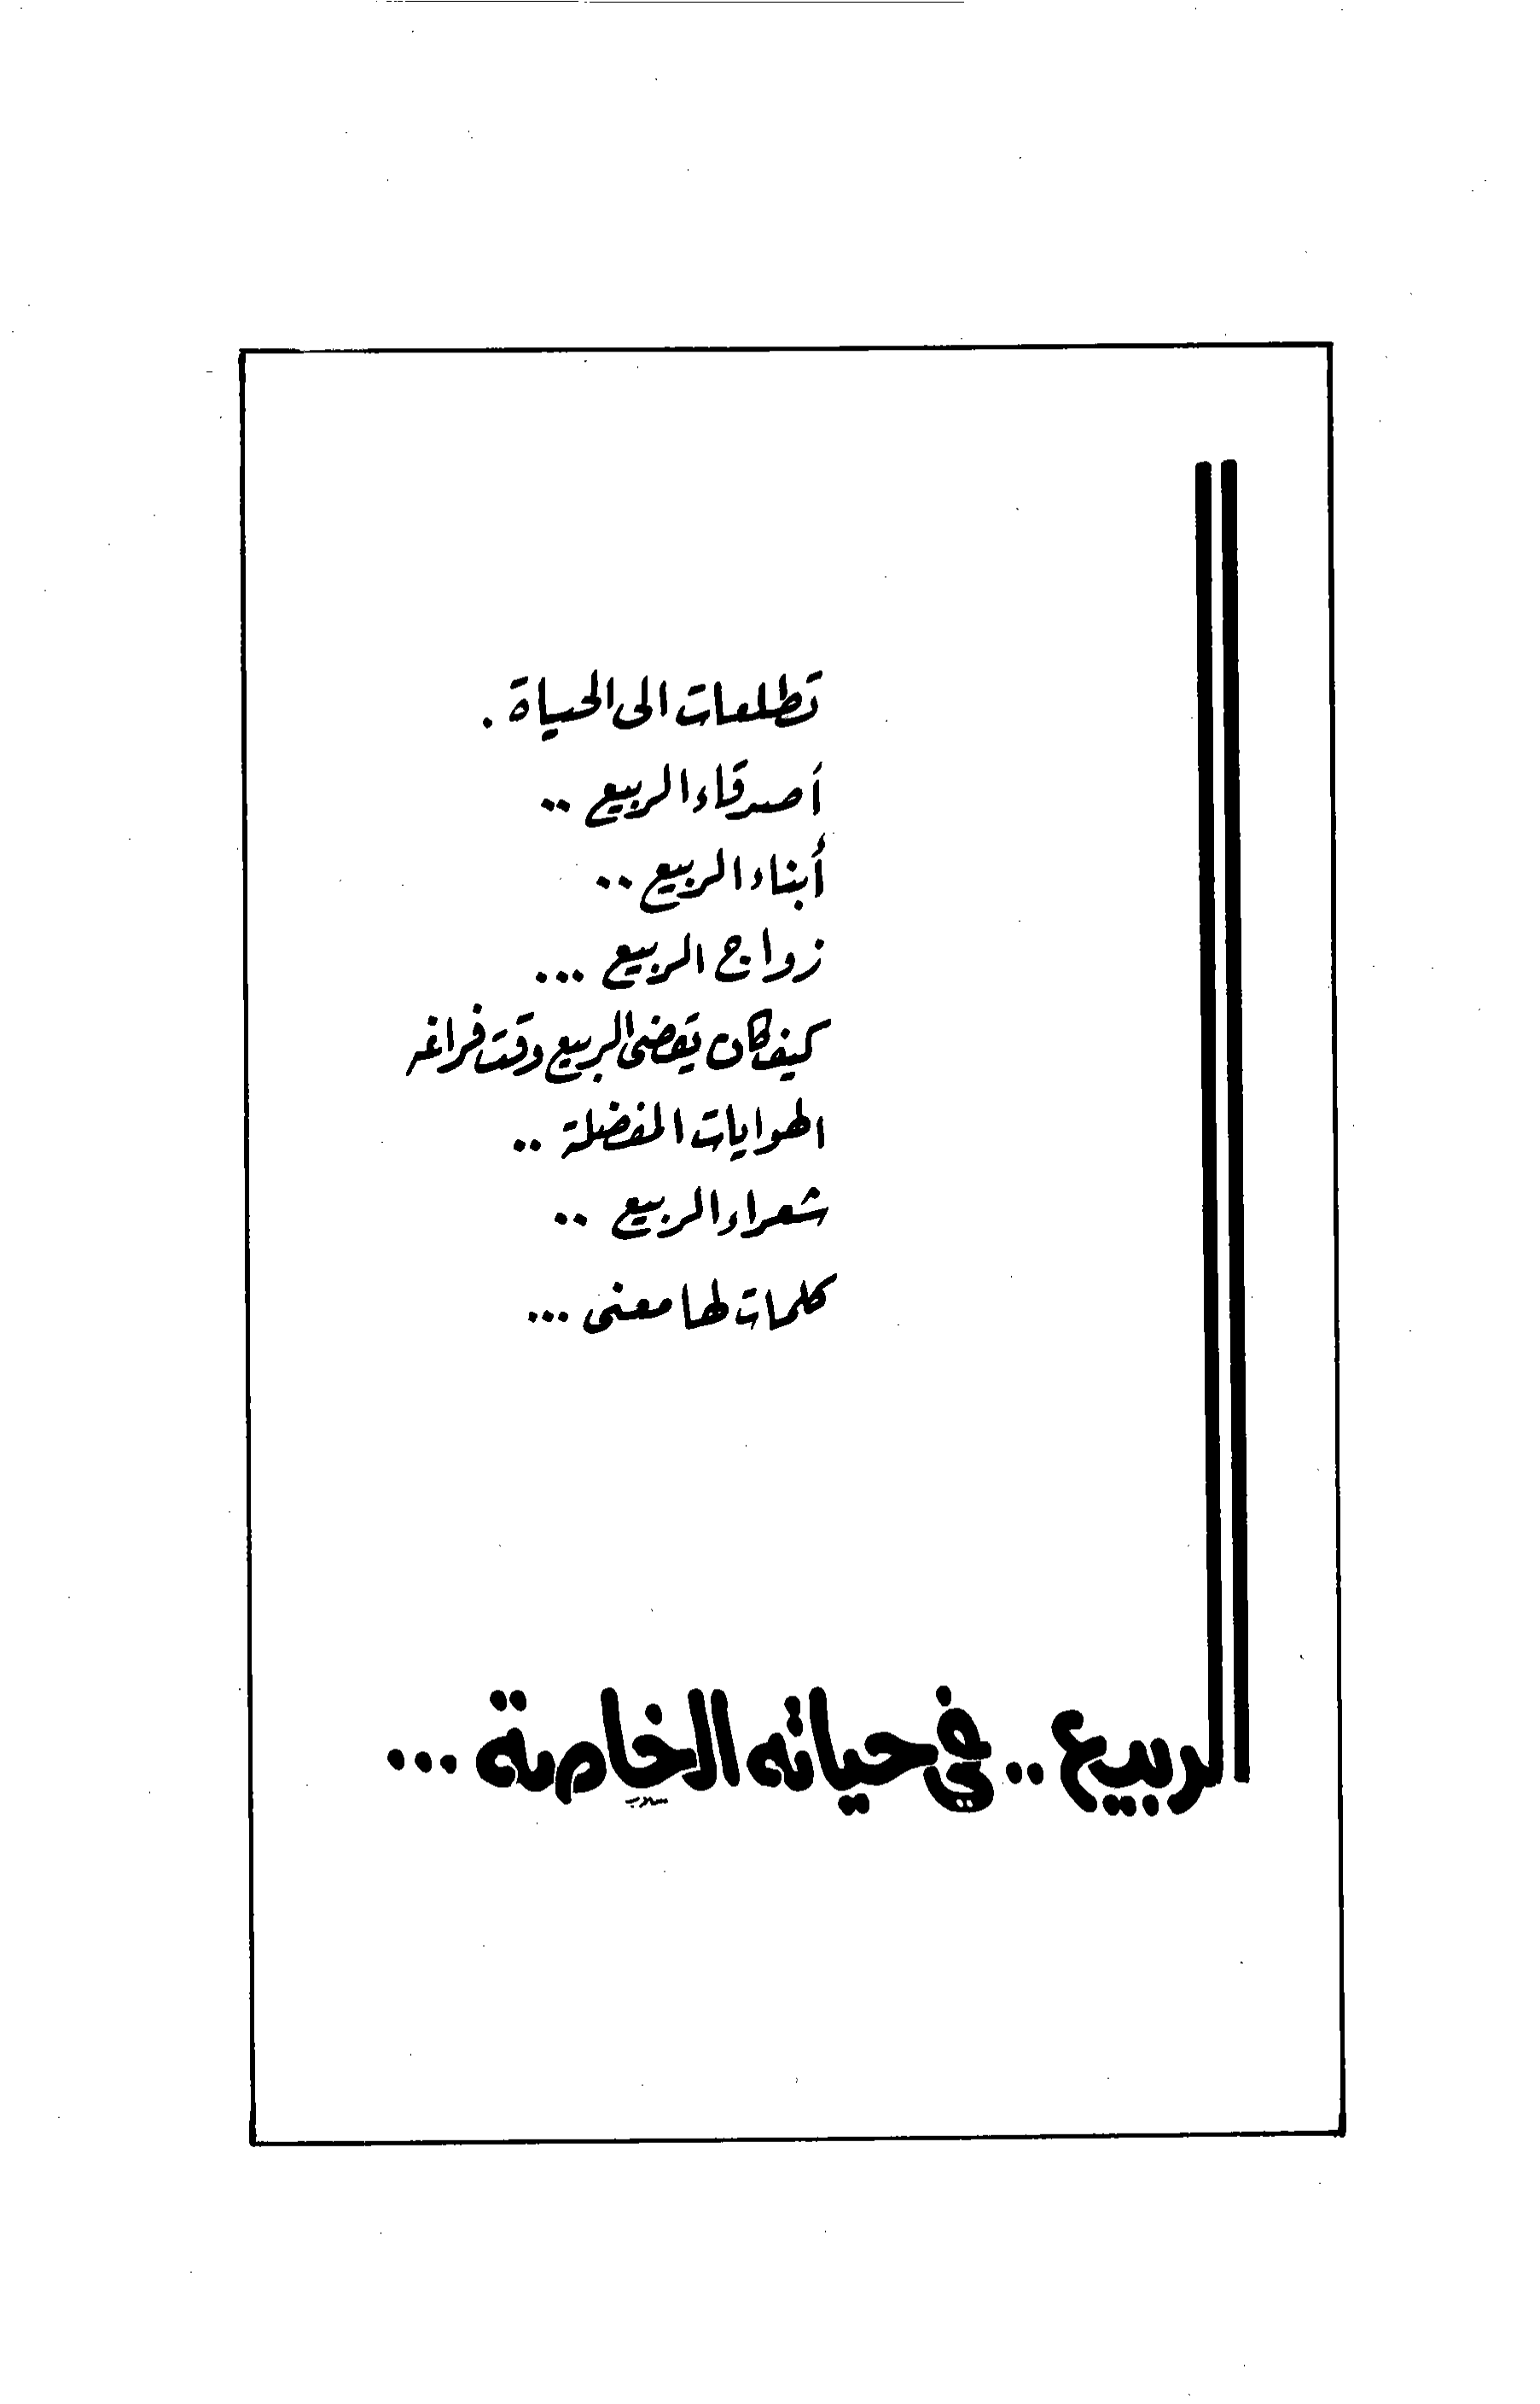 تطلعات الى الحياة .
أصدقاء الربيع ..
أبناء الربيع ..
زواج الربيع ...
كيف كان يقضى الربيع وقت فراغه
الهوايات المفضلة ..
شعراء الربيع ..
كلمات لها معنى ...
الربيع .. في حياته الخاصة ...